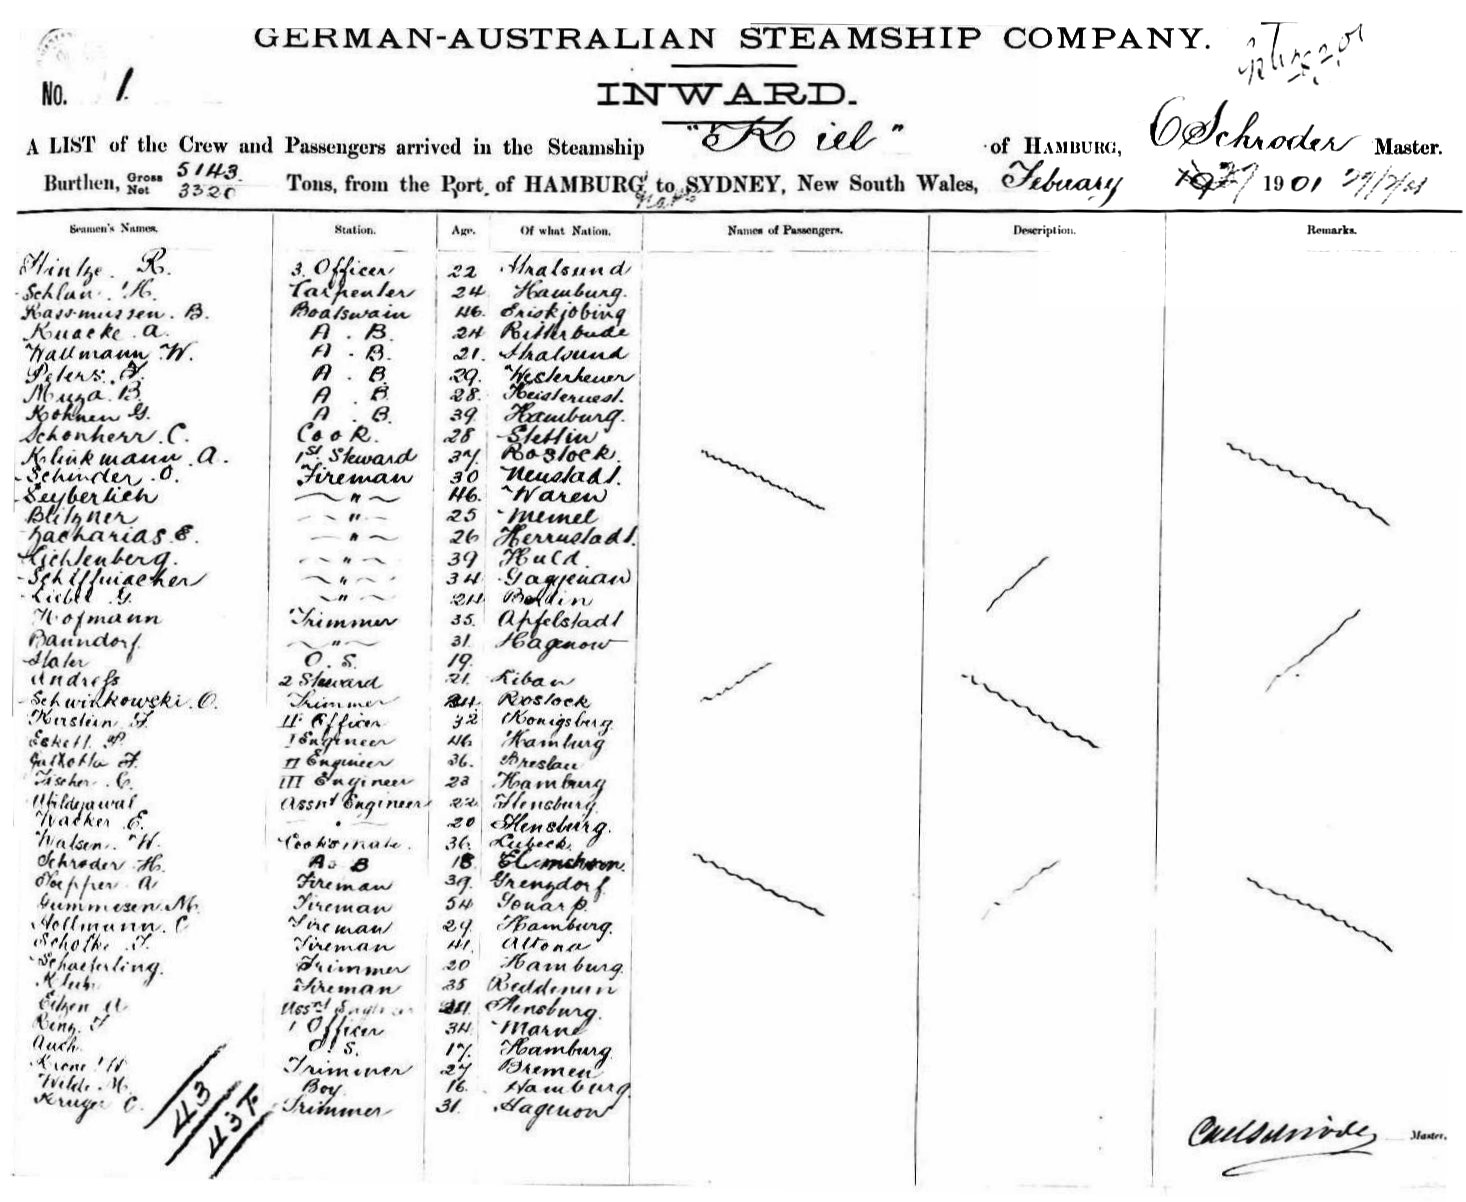 GERMAN-AUSTRALIAN STEAMSHIP COMPANY.
No. 1.
INWARD.
A LIST of the Crew and Passengers arrived in the Steamship "Kiel" of HAMBURG, C Schroder Master.
Burthen, Gross 5143 Net 3320 Tons, from the Port of HAMBURG to SYDNEY, New South Wales, February 1901
Seamen's Names. Station. Age. Of what Nation. Names of Passengers. Description. Remarks.
Hintze. R. 3. Officer 22 Stralsund
Schlun. H. Carpenter 24 Hamburg.
Rassmussen. B. Boatswain 46. Eriskjobing
Knacke. A. A. B. 24
Wallmann W. A. B. 21. Stralsund
Peters. A. B. 29. Westerheuer
Muza. B. A. B. 28. Heisternest.
Kohnen G. A. B. 39 Hamburg.
Schonherr. C. Cook. 28 Stettin
Klinkmann. A. 1st Steward 37. Rostock
Schinder. O. Fireman 30 Neustadt.
Seyberlich " 46. Waren
Blitzner " 25 Memel
Zacharias E. " 26 Herrnstadt.
Lichtenberg. " 39
Schiffmacher " 34 Gaggenau
Liebel G. " 24 Berlin
Hofmann Trimmer 35. Apfelstadt
Banndorf. " 31. Hagenow
Slater O. S. 19.
Andress 2 Steward 21. Libau
Schwinkowski. O. Trimmer 24. Rostock
Kerstein F. II Officer 32 Konigsberg.
Eskell. P. I Engineer 46 Hamburg
F. II Engineer 36. Breslau
Fischer. C. III Engineer 23 Hamburg
Assnt Engineer 22 Flensburg
Wacker E. " 20 Flensburg.
Walsen. W. Cooksmate. 36. Lubeck.
Schroder H. A. B 18 Elmshorn.
Toepper A Fireman 39. Grenzdorf
Gummesen M. Fireman 54
Hollmann. C Fireman 29. Hamburg.
Schotke. F. Fireman 41. Altona
Schaeferling. Trimmer 20 Hamburg.
Fireman 35
Eitzen A Asst Engineer 24. Flensburg.
Rinz. F 1 Officer 34. Marne
Auch. O. S. 17. Hamburg
Krone W Trimmer 27 Bremen
Wilde M. Boy 16. Hamburg.
Kruger C. Trimmer 31. Hagenow
43
43
Carl Schröder Master.